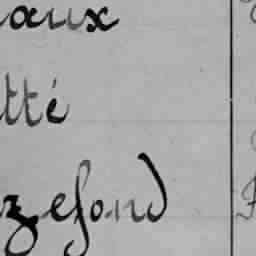 aux
tté
zefond